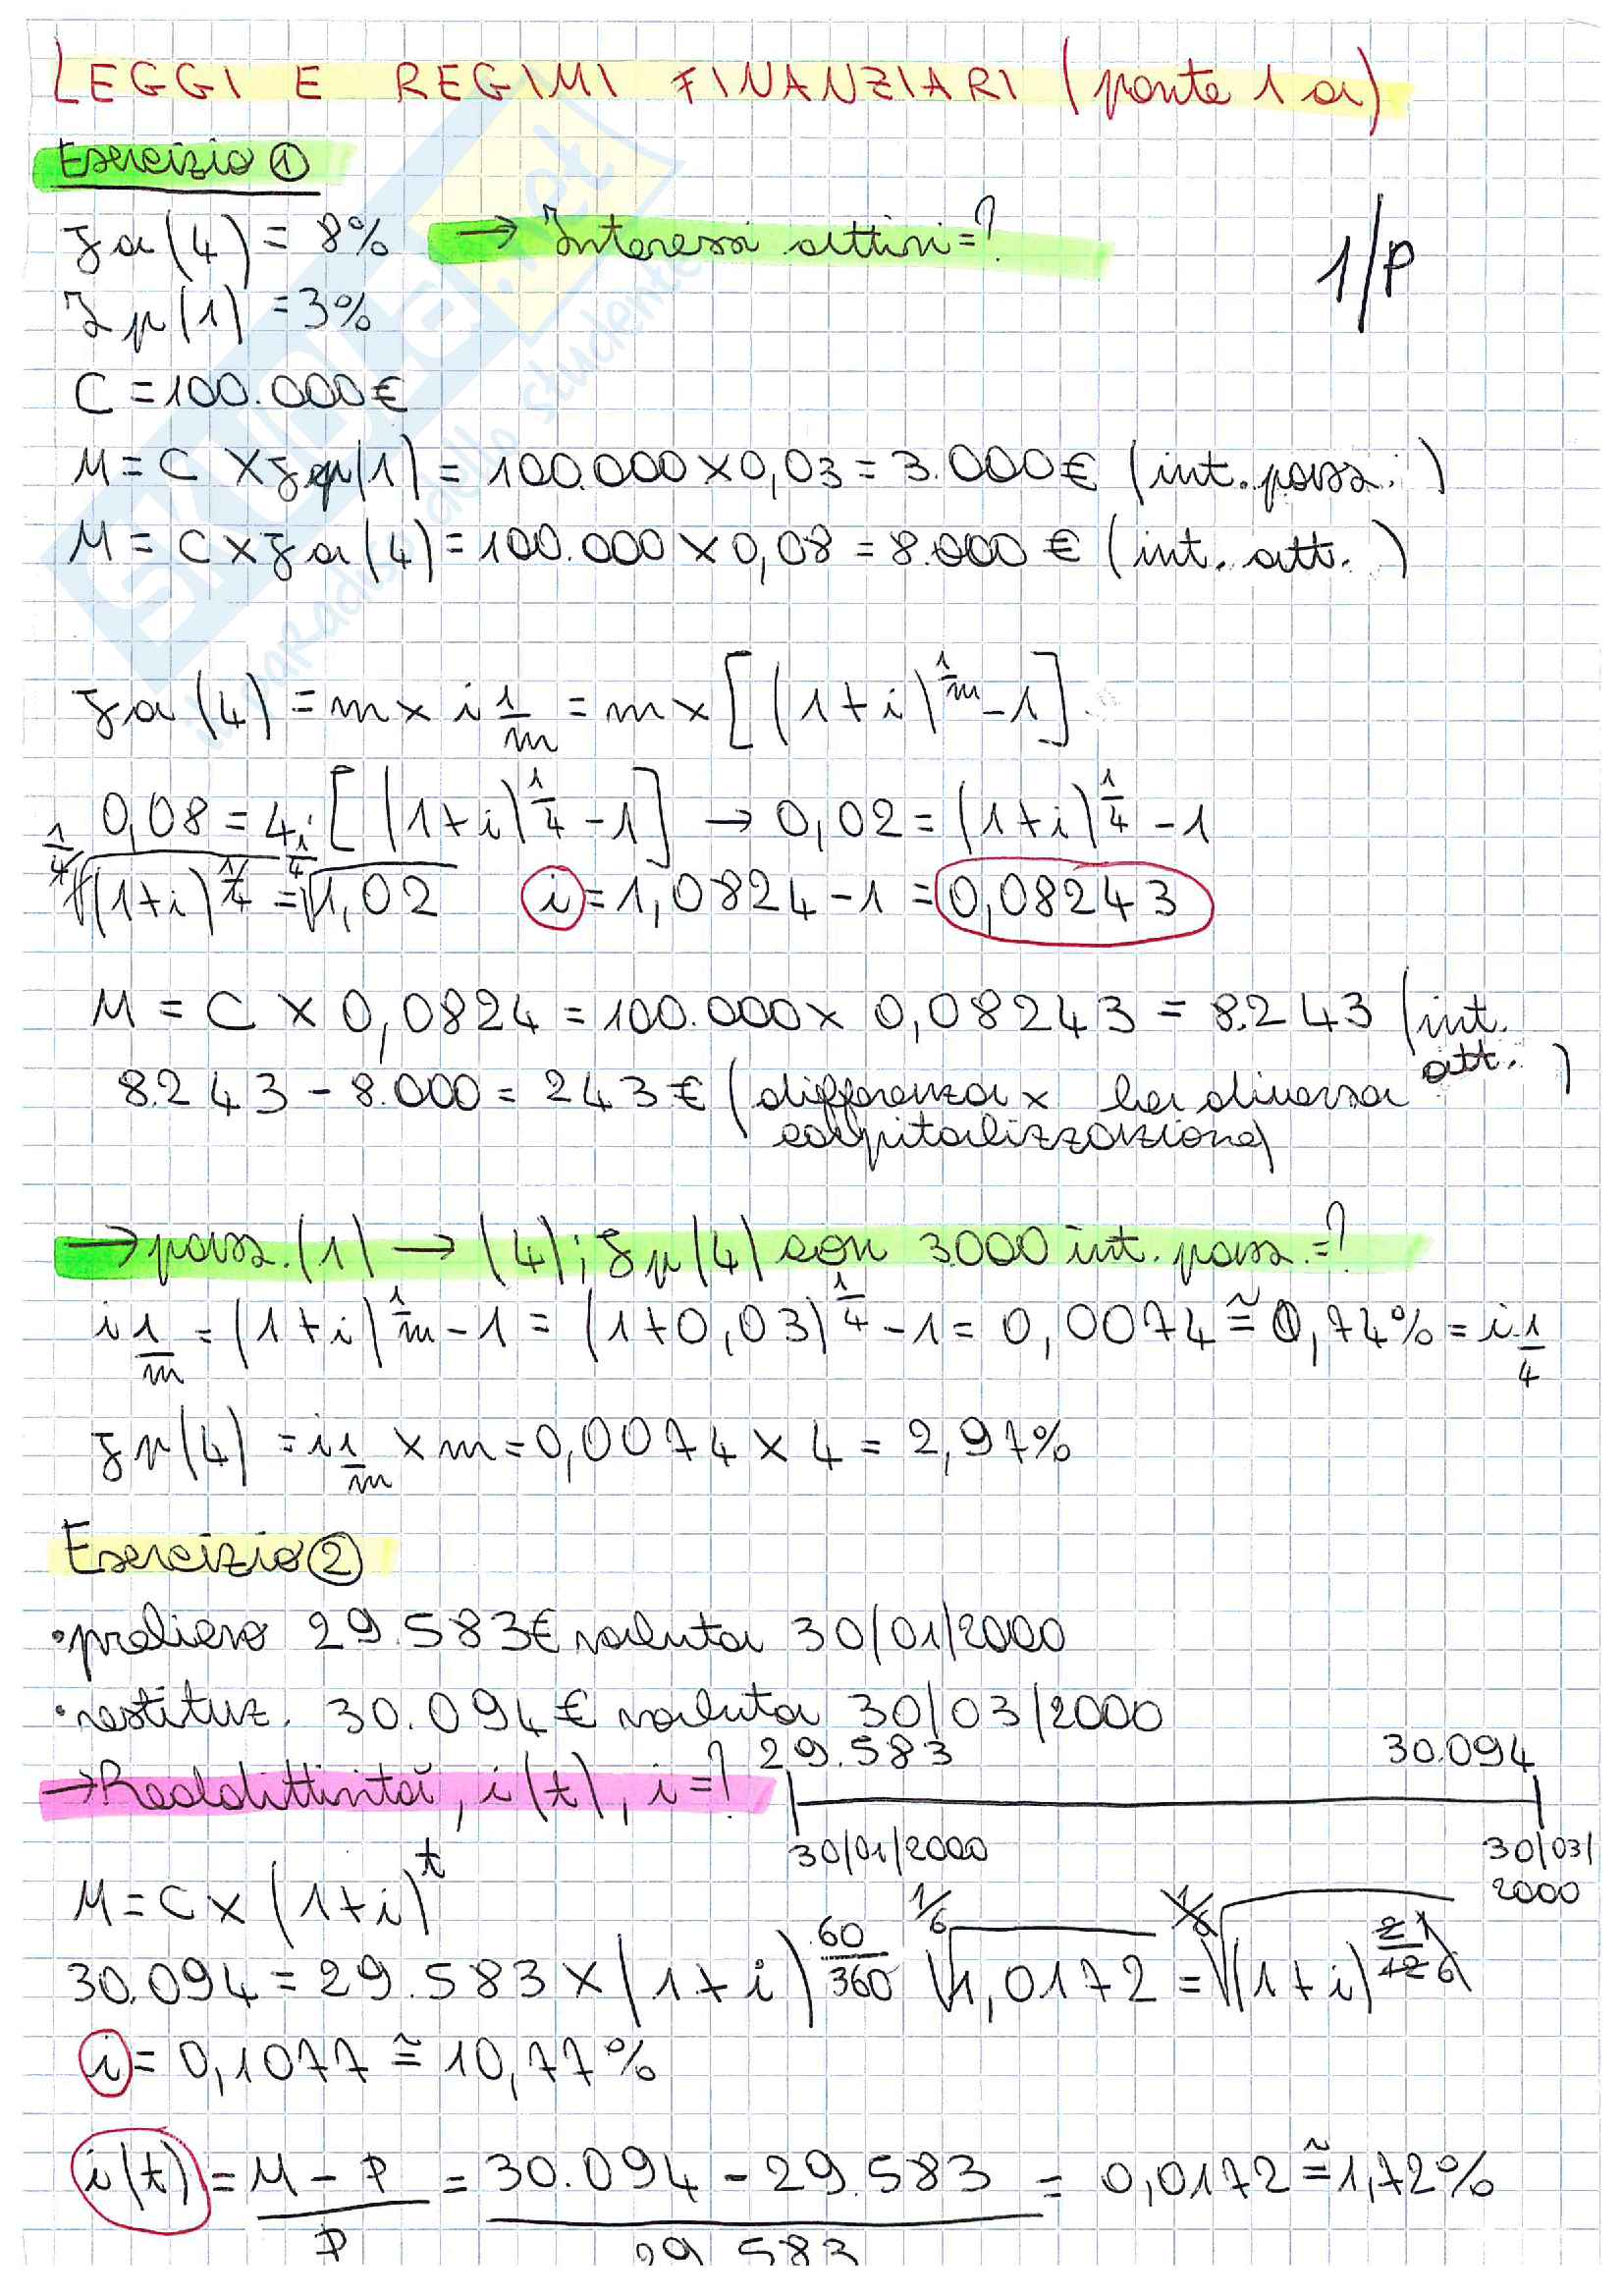 LEGGI E REGIMI FINANZIARI (parte 1 a)
Esercizio ①
Ja(4) = 8% → Interessi attivi=?
1/P
Jp(1) = 3%
C = 100.000€
M = C X Jp(1) = 100.000 x 0,03 = 3.000€ (int. pass.)
M = C x Ja(4) = 100.000 x 0,08 = 8.000 € (int. att.)
Ja(4) = m x i 1/m = m x [(1+i)^1/m - 1]
0,08 = 4 · [(1+i)^1/4 - 1] → 0,02 = (1+i)^1/4 - 1
1/4√(1+i)^1/4 = 1/4√1,02 i = 1,0824 - 1 = 0,08243
M = C x 0,0824 = 100.000 x 0,08243 = 8.243 (int. att.)
8.243 - 8.000 = 243€ (differenza x la diversa
capitalizzazione)
→ pass. (1) → (4); Jp(4) con 3000 int. pass.=?
i 1/m = (1+i)^1/m - 1 = (1+0,03)^1/4 - 1 = 0,0074 ≅ 0,74% = i 1/4
Jp(4) = i 1/m x m = 0,0074 x 4 = 2,97%
Esercizio ②
• prelievo 29.583€ valuta 30/01/2000
• restituz. 30.094€ valuta 30/03/2000
→ Reddittività, i(t), i=?
29.583 30.094
30/01/2000 30/03/2000
M = C x (1+i)^t
30.094 = 29.583 x (1+i)^60/360 1/6√1,0172 = 1/6√(1+i)^2/12 1/6
i = 0,1077 ≅ 10,77%
i(t) = M - P / P = 30.094 - 29.583 / 29.583 = 0,0172 ≅ 1,72%
SKUOLA.net
il paradiso dello studente